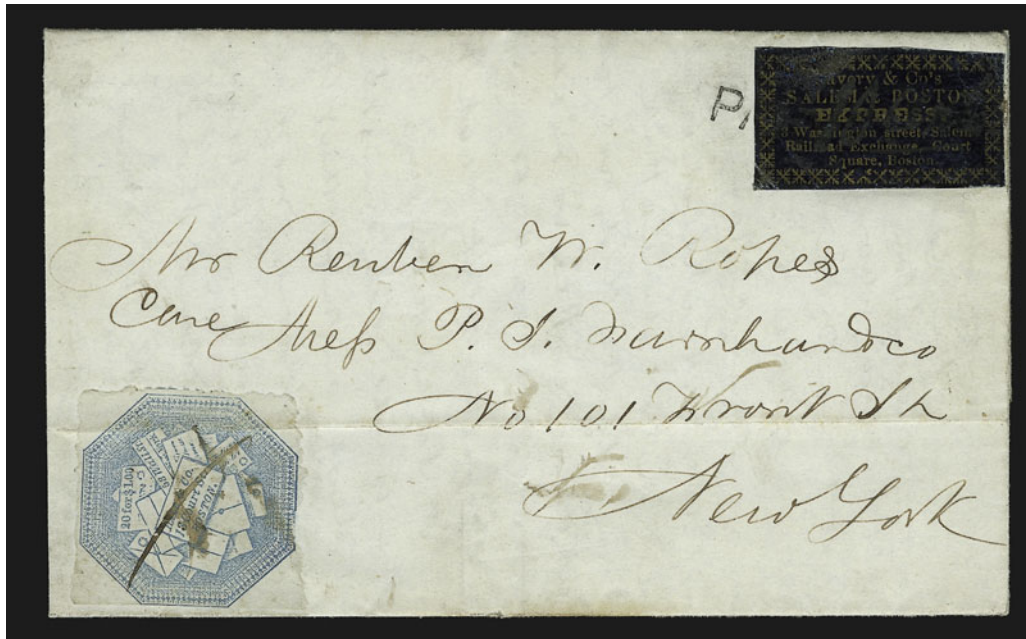 PA
avory & Co's
SALEM & BOSTO
EXPRESS
3 Washington street, Salem
Railroad Exchange, Court
Square, Boston.
Mr Reuben W. Ropes
Care Mess P. S.
No 101 Front St
New York
20 for $1.00
Co.
13 Court St
BOSTON.